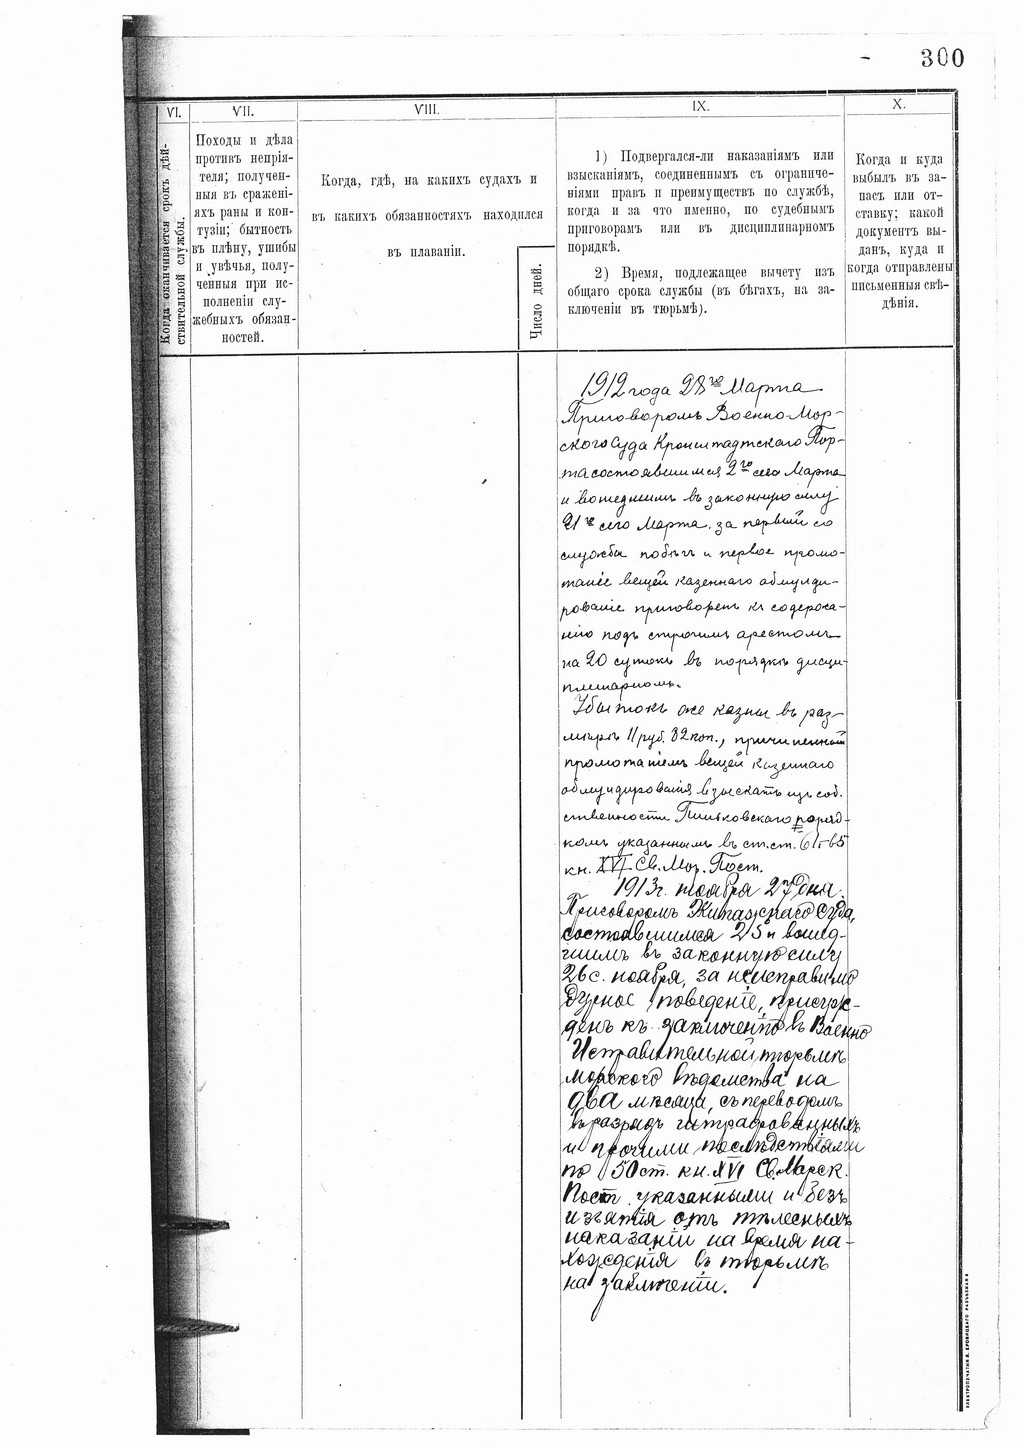 300
VI.
VII.
VIII.
IX.
X.
Когда оканчивается срокъ дѣй-
ствительной службы.
Походы и дѣла
противъ непрія-
теля; получен-
ныя въ сражені-
яхъ раны и кон-
тузіи; бытность
въ плѣну, ушибы
и увѣчья, полу-
ченныя при ис-
полненіи слу-
жебныхъ обязан-
ностей.
Когда, гдѣ, на какихъ судахъ и
въ какихъ обязанностяхъ находился
въ плаваніи.
Число дней.
1) Подвергался-ли наказаніямъ или
взысканіямъ, соединеннымъ съ ограниче-
ніями правъ и преимуществъ по службѣ,
когда и за что именно, по судебнымъ
приговорамъ или въ дисциплинарномъ
порядкѣ.
2) Время, подлежащее вычету изъ
общаго срока службы (въ бѣгахъ, на за-
ключеніи въ тюрьмѣ).
Когда и куда
выбылъ въ за-
пасъ или от-
ставку; какой
документъ вы-
данъ, куда и
когда отправлены
письменныя свѣ-
дѣнія.
1912 года 28го Марта
Приговоромъ Военно-Мор-
ского Суда Кронштадтскаго Пор-
та состоявшимся 2го сего Марта
и вошедшимъ въ законную силу
21го сего Марта, за первый со
службы побѣгъ и первое промо-
таніе вещей казеннаго обмунди-
рованіе приговоренъ къ содержа-
нію подъ строгимъ арестомъ
на 20 сутокъ въ порядкѣ дисци-
плинарномъ.
Убытокъ же казны въ раз-
мѣрѣ 11 руб. 82 коп., причиненный
промотаніемъ вещей казеннаго
обмундированія взыскать изъ соб.
ственности порядк-
комъ указаннымъ въ ст.ст. 61-65
кн. XVI Св. Мор. Пост.
1913 г. ноября 27 дня.
Приговоромъ Экипажнаго Суда,
состоявшимся 25 и вошед-
шимъ въ законную силу
26 с. ноября, за неисправимо
дурное поведеніе, присуж-
денъ къ заключенію въ Военно
Исправительной тюрьмѣ
морского вѣдомства на
два мѣсяца, съ переводомъ
въ разрядъ штрафованныхъ
и прочими послѣдствіями
по 50 ст. кн. XVI Св. Морск.
Пост. указанными и безъ
изъятія отъ тѣлесныхъ
наказаній на время на-
хожденія въ тюрьмѣ
на заключеніи.